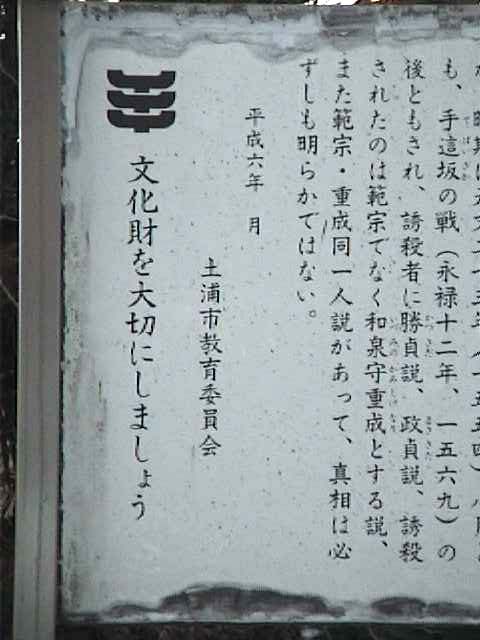 時期は天文二十三年（一五五四）八月
も、手這坂の戦（永禄十二年、一五六九）の
後ともされ、誘殺者に勝貞説、政貞説、誘殺
されたのは範宗でなく和泉守重成とする説、
また範宗・重成同一人説があって、真相は必
ずしも明らかではない。
平成六年　月
土浦市教育委員会
文化財を大切にしましょう